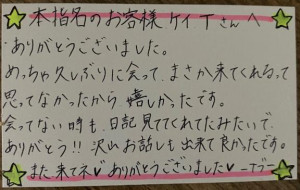 本指名のお客様 ケイTさんへ
ありがとうございました。
めっちゃ久しぶりに会って、まさか来てくれるって
思ってなかったから嬉しかったです。
会ってない時も、日記見ててくれてたみたいで、
ありがとう!! 沢山お話しも出来て良かったです。
また来てネ♥ ありがとうございました♥